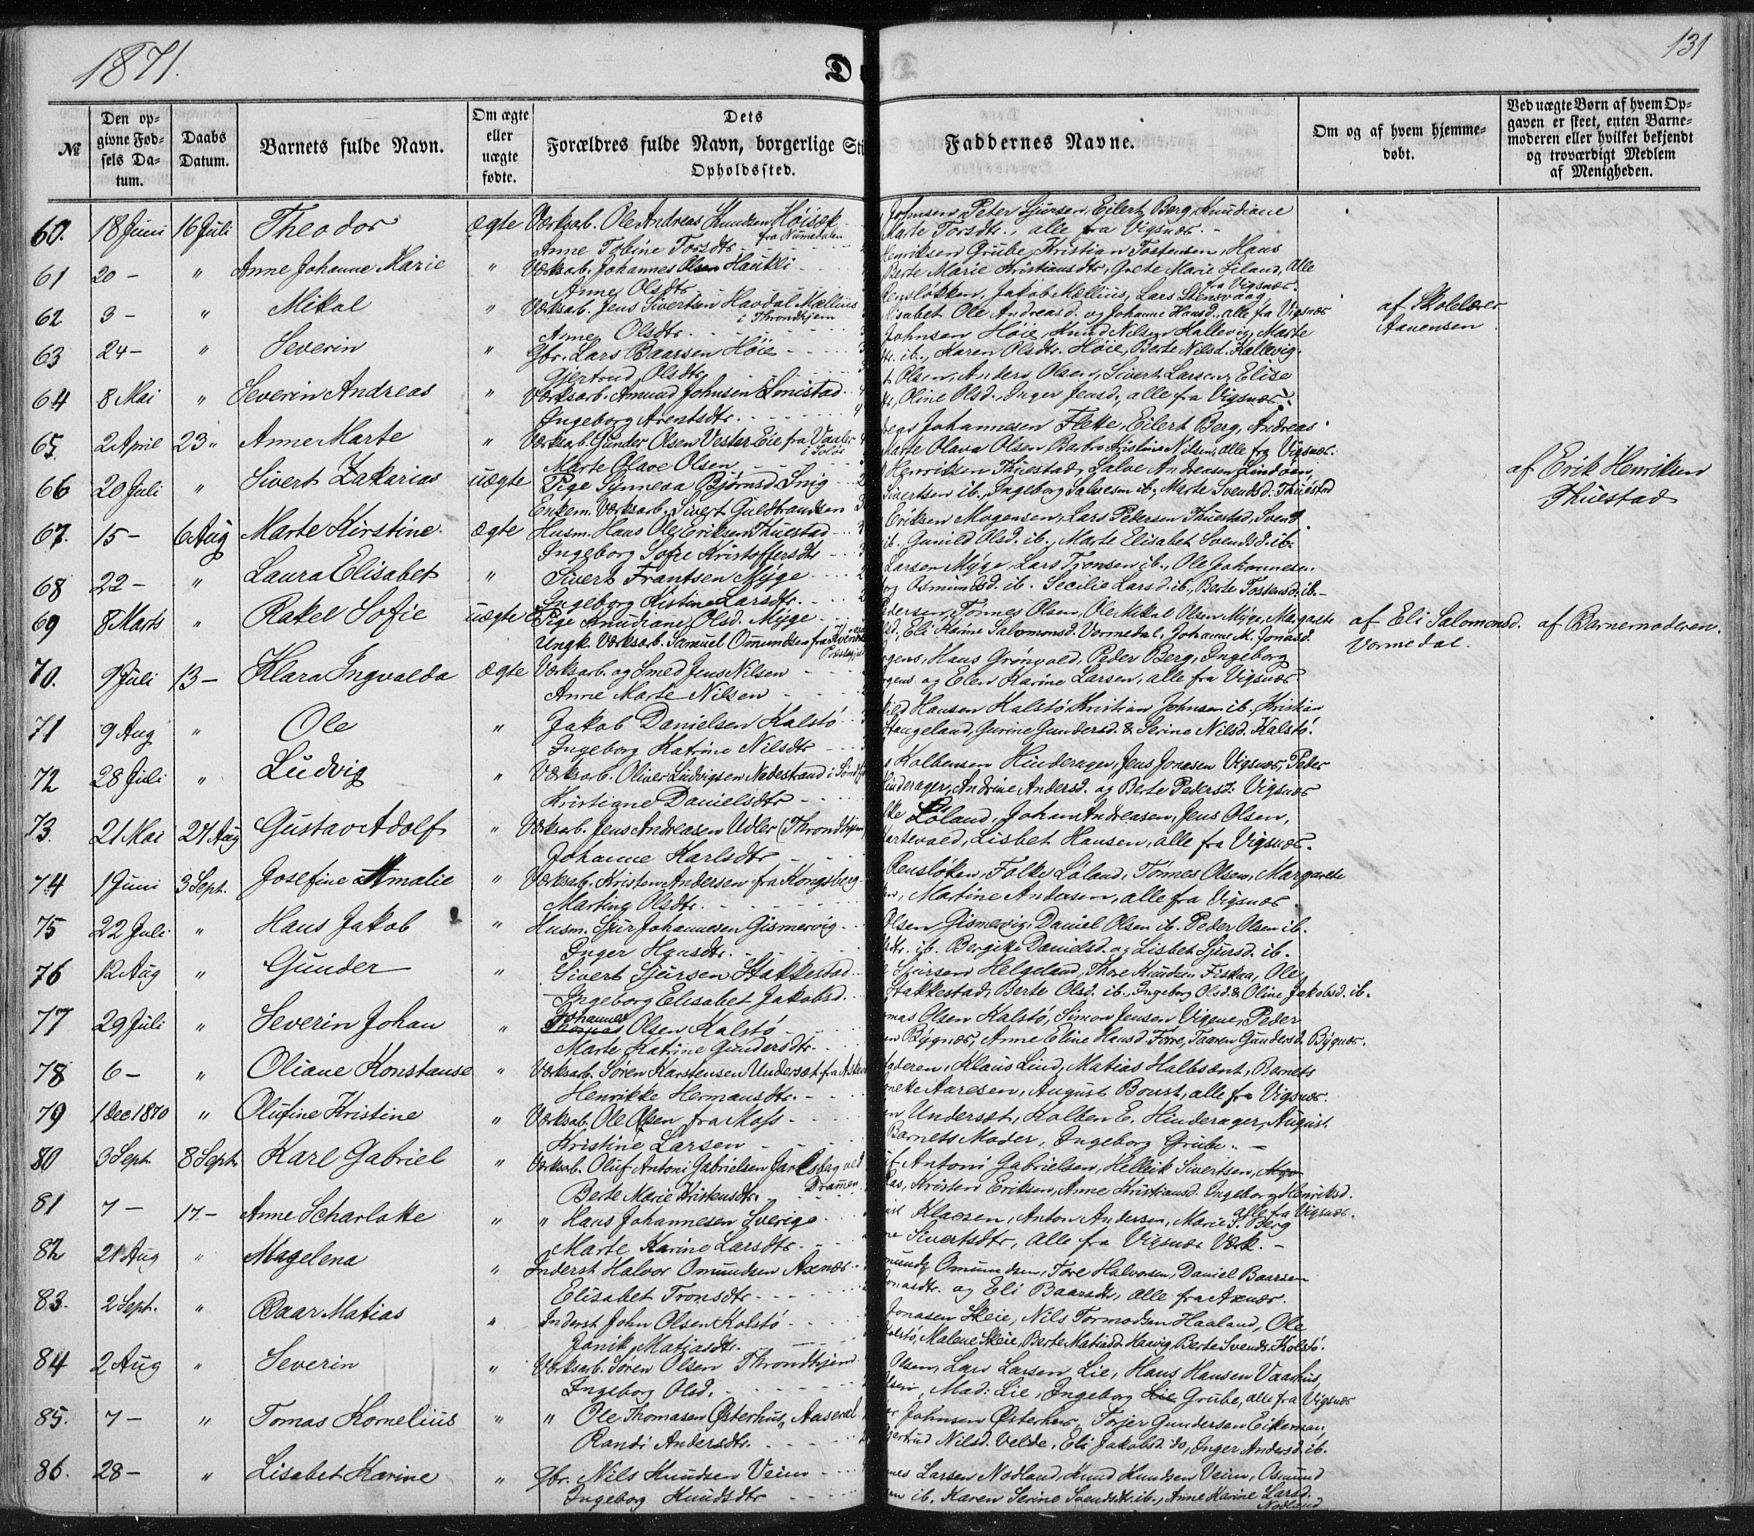 1871.
131
№
Den op-
givne Fød-
sels Da-
tum.
Daabs
Datum.
Barnets fulde Navn.
Om ægte
eller
uægte
fødte.
Dets
Forældres fulde Navn, borgerlige Sti
Opholdssted.
Faddernes Navne.
Om og af hvem hjemme-
døbt.
Ved uægte Børn af hvem Op-
gaven er skeet, enten Barne-
moderen eller hvilket bekjendt
og troværdigt Medlem
af Menigheden.
60. 18 Juni 16 Juli Theodor ægte Værksarb. Ole Andreas Knudsen Høisæk
fra Numedalen
Anne Tobine Torsdtr.
Johnsen, Peter Sjursen, Eilert Berg, Anudiane
Marte Torsdtr., alle fra Vigsnæs.
61 20 – " Anne Johanne Marie " Værksarb. Johannes Olsen Haukli
Anne Olsdtr.
Henriksen Grube, Kristian Tostensen, Hans
Berte Marie Kristiansdtr, Grete Marie Liland, Alle
fra Vigsnæs.
62 3 – " Mikal " Værksarb. Jens Sivertsen Havdal Mællius
i Throndhjem
Anne Olsdtr.
Rensløkken, Jakob Mællius, Lars Stensvaag
Lisabet Ole Andreasd. og Johanne Hansd., alle fra Vigsnæs
af Skolelærer
Aanensen
63 24 – " Severin " Gbr. Lars Baarsen Høie
Gjertrud Olsdtr.
Johnsen Høie, Knud Nilsen Kallevig, Marte
ib., Karen Olsdtr. Høie, Berte Nilsd. Kallevig.
64 8 Mai " Severin Andreas " Værksarb. Amund Johnsen
Ingeborg Arentsdtr.
Olsen, Anders Olsen, Sivert Larsen, Elise
Oline Olsd. Inger Jensd., alle fra Vigsnæs.
65 2 April 23 " Anne Marte " Værksarb. Gunder Olsen Vester Eie fra Vaaler
i Solør
Marte Olave Olsen
Johannesen Flekke, Eilert Berg, Andreas
Marte Olava Olsen Barbro Kristine Nilsen, alle fra Vigsnæs.
66 20 Juli " Sivert Zakarias uægte Pige Synneva Bjørnsd. Snig
Enkem. Værksarb. Sivert Guldbrandsen
Henriksen Thuestad, Salve Andreasen Lindøen,
Sivertsen ib., Ingeborg Salvesen ib., Marte Svendsd. Thuestad
af Erik Henriksen
Thuestad
67. 15 – 6 Aug Marte Kirstine ægte Husm. Hans Ole Eriksen Thuestad
Ingeborg Sofie Kristoffersdtr
Eriksen Mogensen, Lars Petersen Thuestad, Svend
ib., Gunild Olsd. ib., Marte Elisabet Svendsd. ib.
68 22 – " Laura Elisabet " Sivert Frantsen Myge
Ingeborg Kistine Larsdtr.
Larsen Myge, Lars Tronsen ib., Ole Johannesen
Osmundsd. ib. Secilie Larsd ib., Berte Tostensd. ib.
69 8 Marts " Rakel Sofie uægte Pige Knudiane Olsd. Myge
Ungk. Værksarb. Samuel Omundsen fra
Pedersen, Tønnes Olsen, Ole Mikal Olsen Myge, Margrete
Eli Karine Salomonsd. Vormedal, Johanne M. Jonasd.
af Eli Salomonsd.
Vormedal.
af Barnemoderen.
70. 9 Juli 13 – Klara Ingvalda ægte Værksarb. og Smed Jens Nilsen
Anne Marte Nilsen
Hans Grønvold, Peder Berg, Ingeborg
og Elen Karine Larsen, alle fra Vigsnæs
71 9 Aug " Ole " Jakob Danielsen Kalstø
Ingeborg Katrine Nilsdtr
Hansen Kalstø Kristian Johnsen ib., Kristian
Stangeland, Gurine Gundersd. & Serine Nilsd. Kalstø.
72 28 Juli " Ludvig " Værksarb. Oliver Ludvigsen Nedestrand i
Kristiane Danielsdtr
Kolbensen Hinderager, Jens Jonasen Vigsnæs, Peder
Hinderager, Andrine Andersd. og Berte Pedersd. Vigsnæs
73. 21 Mai 27 Aug Gustav Adolf " Værksarb. Jens Andreasen Udler (Throndhjem)
Johanne Karlsdtr
Løland, Johan Andreasen, Jens Olsen,
Lisbet Hansen, alle fra Vigsnæs.
74 1 Juni 3 Sept. Josefine Amalie " Værksarb. Kristen Andersen fra Kongsberg
Martine Olsdtr.
Rensløken, Folke Løland, Tønnes Olsen, Margarete
Martine Andersen, alle fra Vigsnæs
75 22 Juli " Hans Jakob " Husm. Sjur Johannesen Gismervig
Inger Hansdtr.
Olsen Gismervig, Daniel Olsen ib. Peder Olsen ib.
ib. Bergite Danielsd. og Lisbet Sjursd. ib.
76 12 Aug " Gunder " Sivert Sjursen Stakkestad
Ingeborg Elisabet Jakobsd.
Sjursen Helgeland, Thore Knudsen Fiskaa, Ole
Stakkestad, Berte Olsd. ib., Ingeborg Olsd. & Oline Jakobsd. ib.
77 29 Juli " Severin Johan " Johannes
Olsen Kalstø
Marte Katrine Gundersdtr.
Olsen Kalstø, Simon Jensen Vigsne, Peder
Bygnes, Anne Eline Hansd. Førre, Taaren Gundersd. Bygnes.
78 6 – " Oliane Konstanse " Værksarb. Søren Karstensen Underset fra
Henrikke Hermansdtr.
Faderen, Klaus Lind, Matias Halbsent, Barnets
Aaresen, August Boust, alle fra Vigsnæs.
79 1 Dec 1870 " Olufine Kristine " Værksarb. Ole Olsen fra Moss
Kristine Larsen
Underset, Kolben E. Hinderager, August
Barnets Moder, Ingeborg Grube.
80 3 Sept. 8 Sept. Karl Gabriel " Værksarb. Oluf Antoni Gabrielsen Jarlsberg ved
Dramen
Berte Marie Kristensdtr.
Antoni Gabrielsen, Hellik Sivertsen,
Kristen Eriksen, Anne Kristiansd. Ingeborg Henriksd.
alle fra Vigsnæs.
81 7 – 17 – Anne Scharlotte " " Hans Johannesen Sverige
Marte Karine Larsdtr.
Klaesen, Anton Andersen, Marie S. Berg
Sivertsdtr, alle fra Vigsnæs Værk.
82 21 Aug " Magelena " Inderst Halvor Omundsen Axnæs
Elisabet Tronsdtr
Omundsen, Tore Halvorsen, Daniel Baarsen
og Eli Baarsdtr, alle fra Axnæs.
83. 2 Sept. " Baar Matias " Inderst John Olsen Kalstø
Jonik Matiasdtr.
Jonasen Skeie, Nils Tormodsen Haaland, Ole
Kalstø, Malene Skeie, Berte Matiasd Haavig, Berte Svendsd. Kolstø.
84 2 Aug " Severin " Værksarb. Søren Olsen Throndhjem
Ingeborg Olsd.
Olsen, Lars Larsen Lie, Hans Hansen Vaarhus,
Mad: Lie, Ingeborg Lie Grube, alle fra Vigsnæs
85. 7 – " Tomas Kornelius " " Ole Thomasen Østerhus, Aaseral
Randi Andersdtr.
Johnsen Østerhus, Torjer Gundersen Eikemau,
Gjertrud Nilsd. Velde, Eli Jakobsd. do, Inger Andersd. ib.
86. 28 – " Lisabet Karine " Gbr. Nils Knudsen Veim
Ingeborg Knudsdtr
Larsen Nodland, Knud Knudsen Veim, Osmund
ib. Karen Serine Svendsdtr. ib., Anne Karine Larsd.
Nodland